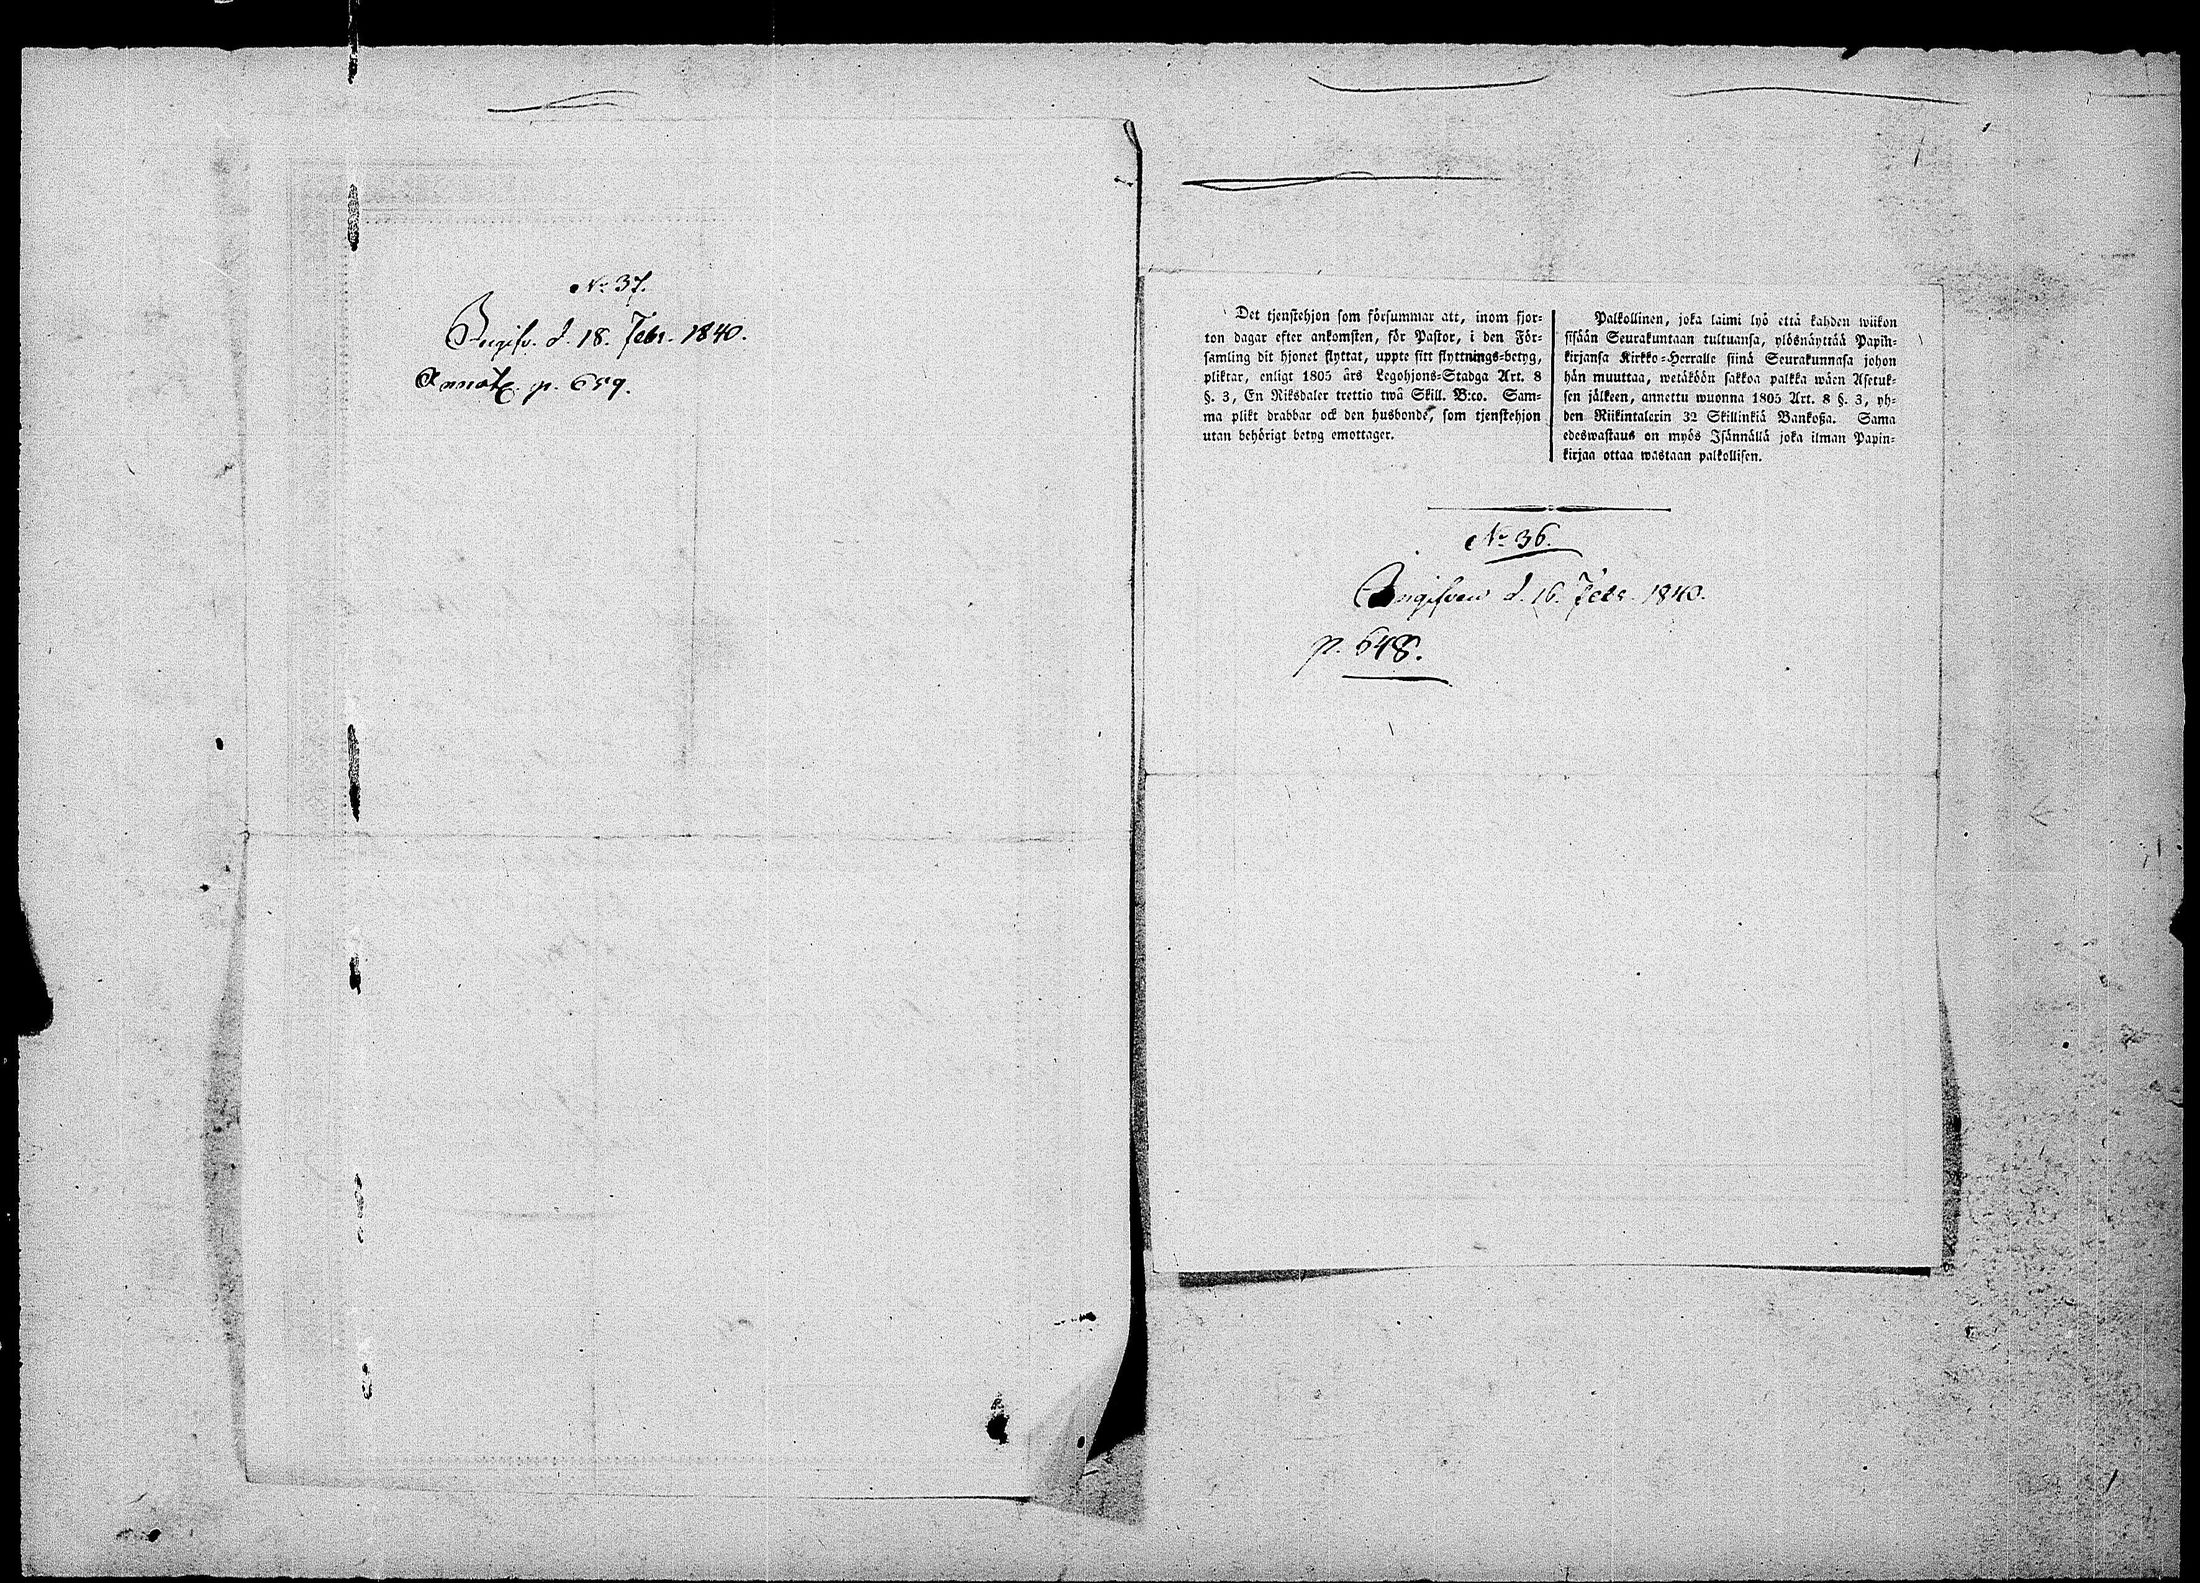 No 37.
Ingifv. d. 18. Febr. 1840.
Annot. p. 659.
Det tjenstehjon som försummar att, inom fjor-
ton dagar efter ankomsten, för Pastor, i den För-
samling dit hjonet flyttat, uppte sitt flyttnings-betyg,
pliktar, enligt 1805 års Legohjons-Stadga Art. 8
§. 3, En Riksdaler trettio twå Skill. B:co. Sam-
ma plikt drabbar ock den husbonde, som tjenstehjon
utan behörigt betyg emottager.
Palkollinen, joka laimi lyö että kahden wiikon
sisään Seurakuntaan tultuansa, ylösnäyttää Papin-
kirjansa Kirkko-Herralle siinä Seurakunnasa johon
hän muuttaa, wetäköön sakkoa palkka wäen Asetuk-
sen jälkeen, annettu wuonna 1805 Art. 8 §. 3, yh-
den Riikintalerin 32 Skillinkiä Bankoßa. Sama
edeswastaus on myös Isännällä joka ilman Papin-
kirjaa ottaa wastaan palkollisen.
No 36.
Ingifven d. 16. Febr. 1840.
p. 648.